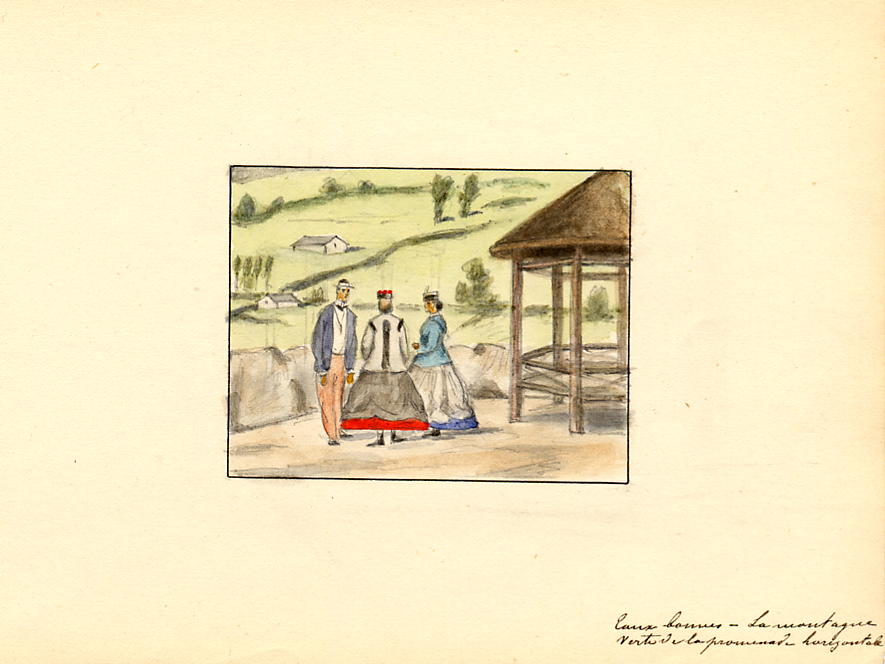 Eaux bonnes – La montagne
Verte de la promenade horizontale